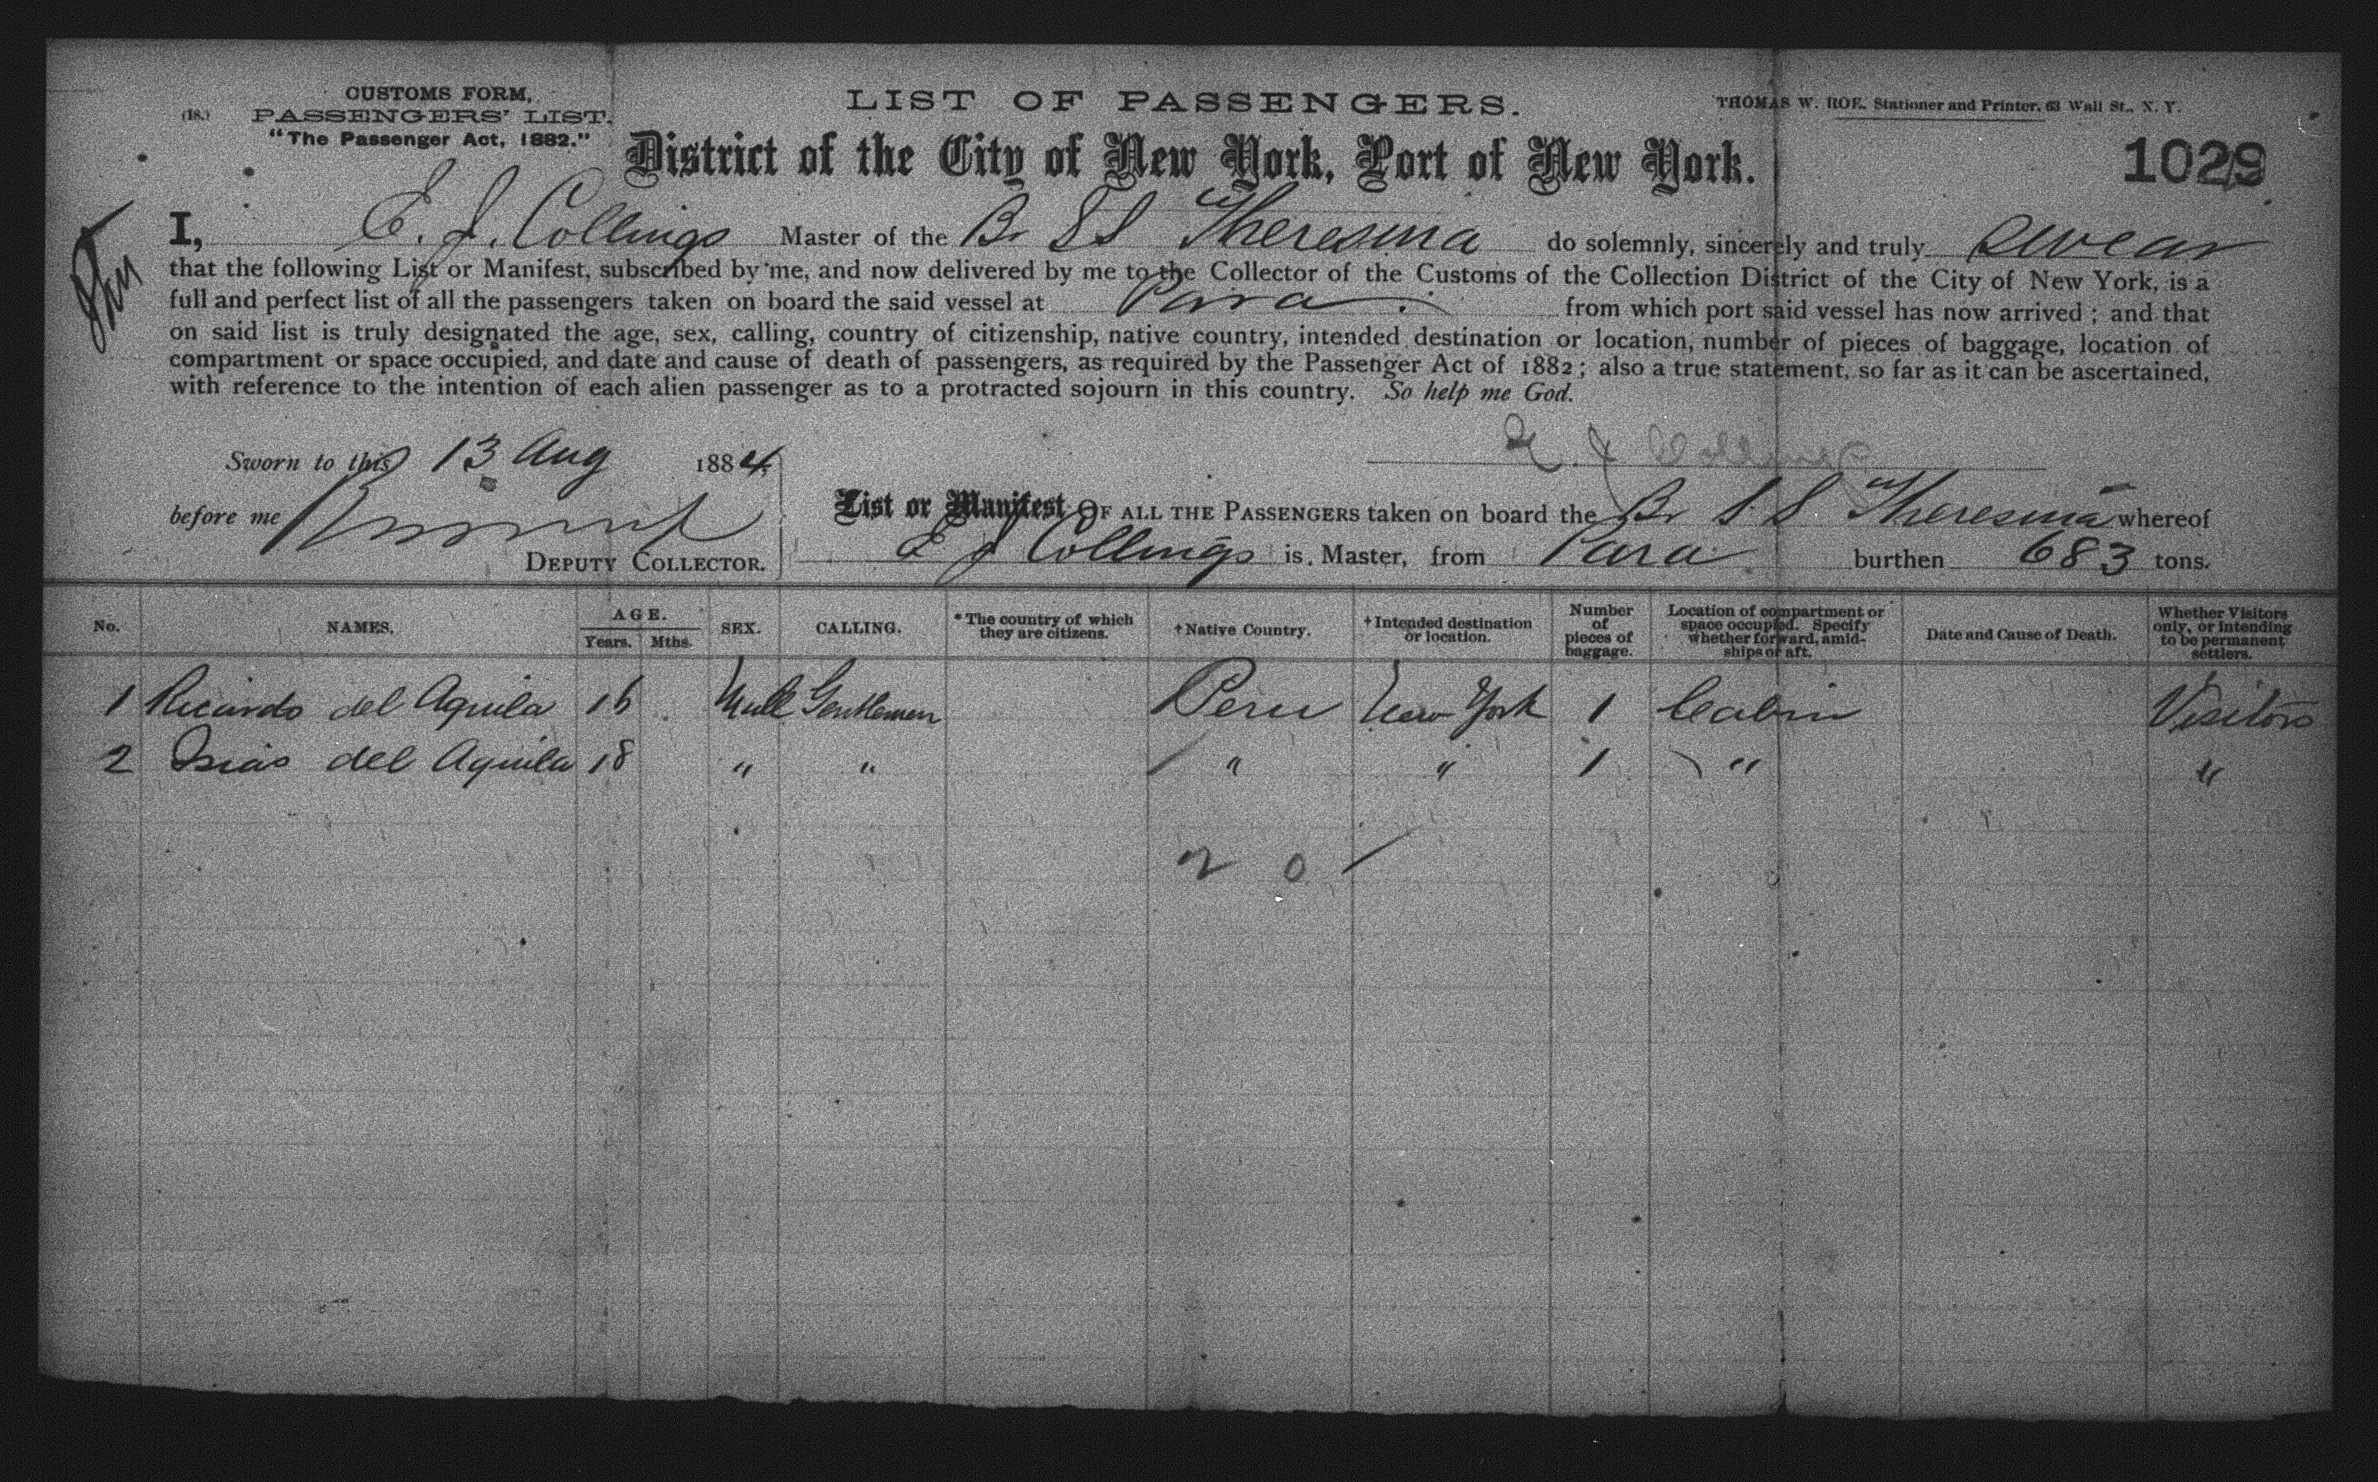 CUSTOMS FORM,
(18.) PASSENGERS' LIST.
"The Passenger Act, 1882."
LIST OF PASSENGERS.
THOMAS W. ROE, Stationer and Printer, 63 Wall St., N. Y.
District of the City of New York, Port of New York.
1029
I, E. J. Collings Master of the Br SS Theresina do solemnly, sincerely and truly swear
that the following List or Manifest, subscribed by me, and now delivered by me to the Collector of the Customs of the Collection District of the City of New York, is a
full and perfect list of all the passengers taken on board the said vessel at Para from which port said vessel has now arrived; and that
on said list is truly designated the age, sex, calling, country of citizenship, native country, intended destination or location, number of pieces of baggage, location of
compartment or space occupied, and date and cause of death of passengers, as required by the Passenger Act of 1882; also a true statement, so far as it can be ascertained,
with reference to the intention of each alien passenger as to a protracted sojourn in this country. So help me God.
E. J Collings
Sworn to this 13 Aug 1884
before me
DEPUTY COLLECTOR.
List or Manifest OF ALL THE PASSENGERS taken on board the Br S S Theresina whereof
E J Collings is Master, from Para burthen 683 tons.
No. NAMES. AGE. Years. Mths. SEX. CALLING. *The country of which they are citizens. †Native Country. †Intended destination or location. Number of pieces of baggage. Location of compartment or space occupied. Specify whether forward, amidships or aft. Date and Cause of Death. Whether Visitors only, or intending to be permanent settlers.
1 Ricardo del Aquila 16 Male Gentlemen Peru New York 1 Cabin Visitors
2 Isias del Aquila 18 " " " " 1 " "
2 0